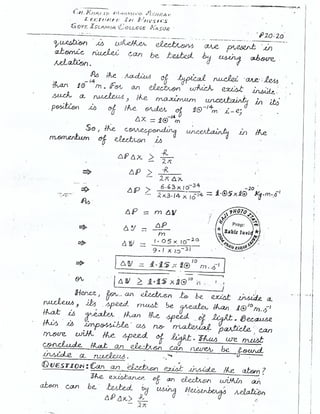 CH. KHALID MAHMOOD
LECTURER IN PHYSICS
GOVT. ISLAMIA COLLEGE KASUR
P20-20
question is whether electrons are present in
atomic nuclei can be tested by using above
relation.
As the radius of typical nuclei are less
than 10⁻¹⁴m. For an electron which exist inside
such a nucleus, the maximum uncertainty in its
position is of the order of 10⁻¹⁴m i-e;
ΔX = 10⁻¹⁴m
So, the corresponding uncertainty in the
momentum of electron is
ΔP ΔX ≥ h/2π
⇒ ΔP ≥ h/2πΔX
⇒ ΔP ≥ 6.63×10⁻³⁴/2×3.14×10⁻¹⁴ = 1.05×10⁻²⁰ Kg.m.s⁻¹
As
ΔP = m ΔV
⇒ ΔV = ΔP/m
⇒ ΔV = 1.05×10⁻²⁰/9.1×10⁻³¹
⇒ ΔV = 1.15×10¹⁰ m.s⁻¹
or ΔV ≥ 1.15×10¹⁰
HAJI PHOTO STATE
Prop:
Sabir Javid
Hence, for an electron to be exist inside a
nucleus, its speed must be greater than 10¹⁰m.s⁻¹
that is greater than the speed of light. Because
this is impossible as no material particle can
move with the speed of light. Thus we must
conclude that an electron can never be found
inside a nucleus.
QUESTION: Can an electron exist inside the atom?
The existance of an electron within an
atom can be tested by using Heisenberg's relation
ΔP ΔX ≥ h/2π